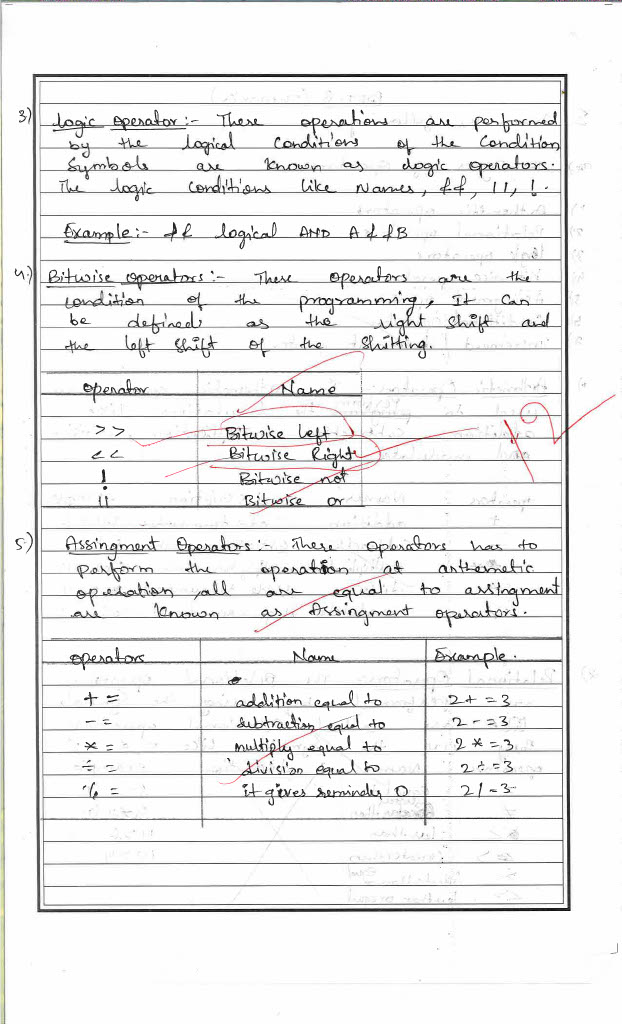 3) Logic operator :- These operations are performed
by the logical Conditions of the Condition
Symbols are known as logic operators.
The logic Conditions like Names, &&, ||, !.
Example:- && logical AND A&&B
4) Bitwise operators :- These operators are the
condition of the programming, It Can
be defined as the right shift and
the left shift of the Shifting.
operator Name
>> Bitwise left
<< Bitwise Right
! Bitwise not
|| Bitwise or
12
5) Assingment Operators :- These operators has to
perform the operation at arthemetic
operation, all are equal to assingment
are known as Assingment operators.
operators Name Example.
+= addition equal to 2+=3
-= subtraction equal to 2-=3
*= multiply equal to 2*=3
÷= division equal to 2÷=3
%= it gives reminder 0 2/=3